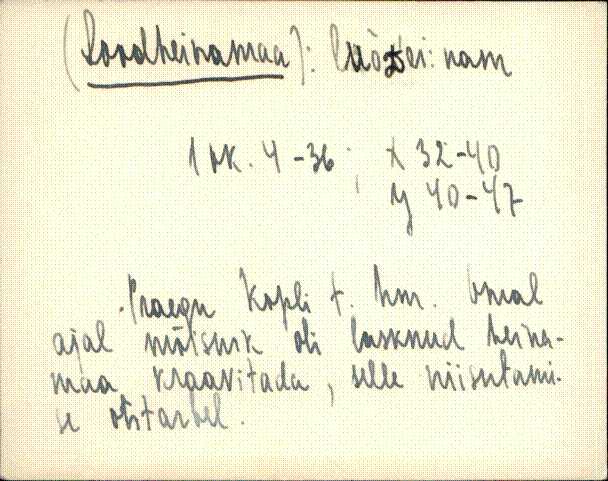 (Loodheinamaa): luõttei: nam
1 vk. 4-36; x 32-40
y 40-47
Praegu Kopli t. hm. Omal
ajal mõisnik oli lasknud heina-
maa kraavitada, selle niisutami-
se otstarbel.